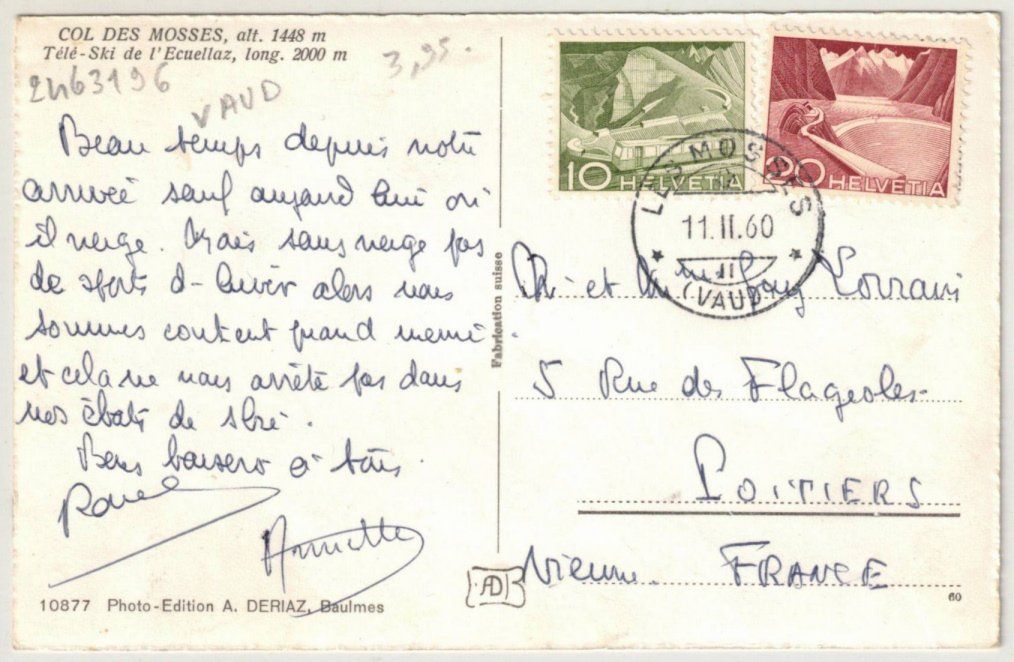 COL DES MOSSES, alt. 1448 m
Télé-Ski de l'Ecuellaz, long. 2000 m
2463196
VAUD
3,95.
Beau temps depuis notre
arrivée sauf aujourd'hui où
il neige. Mais sans neige pas
de sports d'hiver alors nous
sommes content quand meme
et cela ne nous arrête pas dans
nos ébats de skri.
Bons baisers à tous.
Annette
10877 Photo-Edition A. DERIAZ, Baulmes
Fabrication suisse
AD
10 HELVETIA
20 HELVETIA
LES MOSSES
11.II.60
11
(VAUD)
et Lorrain
5 Rue des Flageoles
POITIERS
Vienne. FRANCE
60